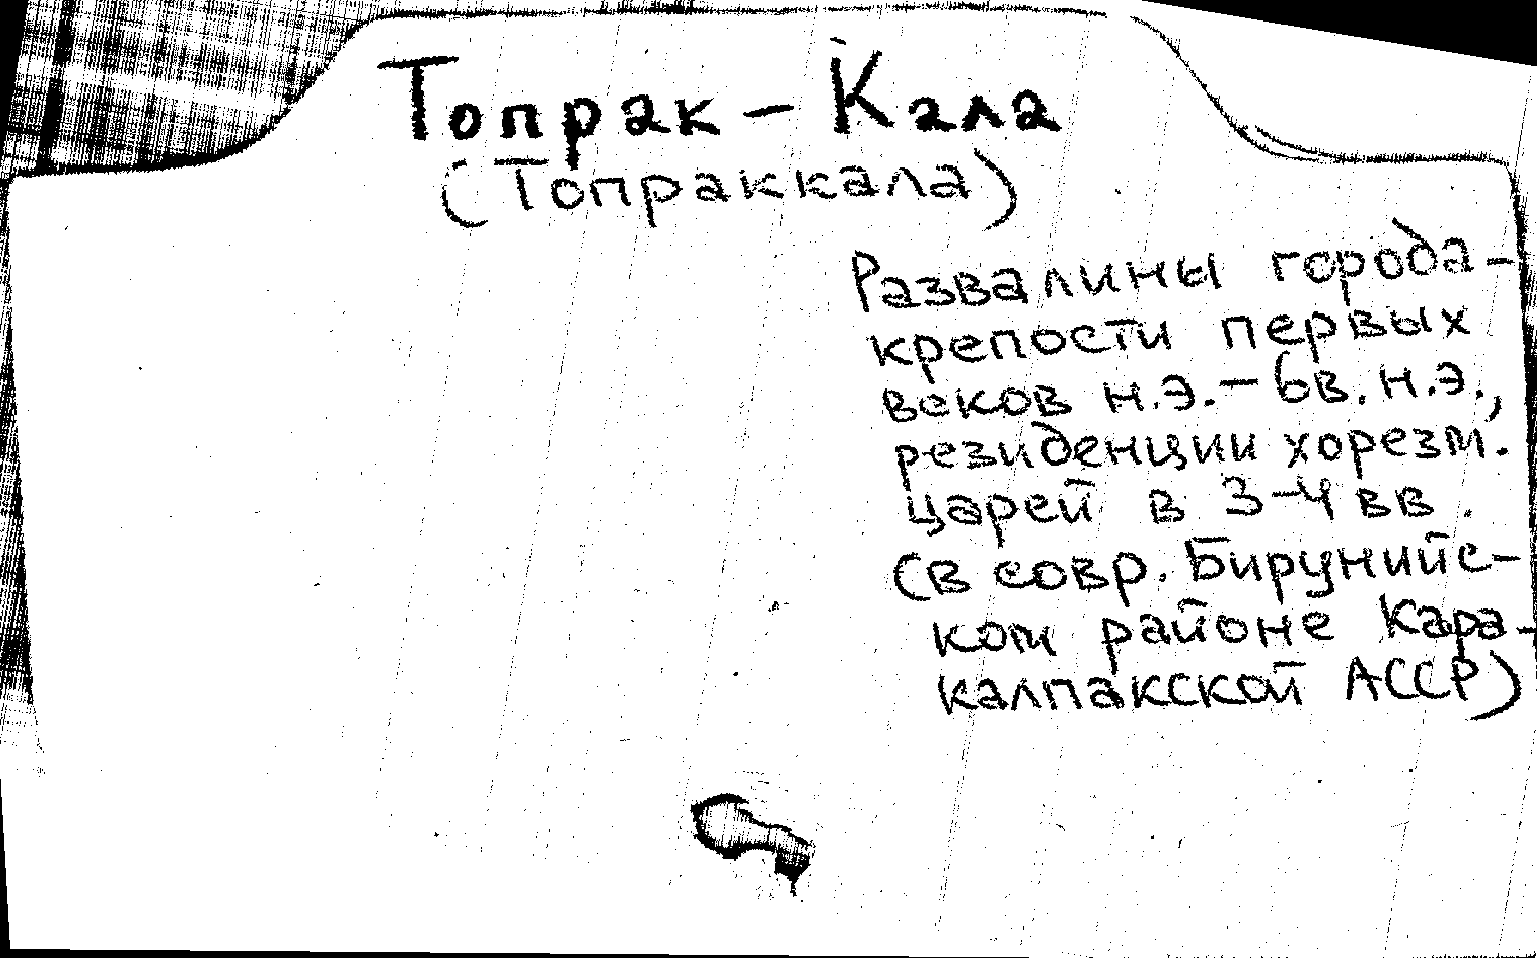 Топрак – Кала
(Топраккала)
Развалины города-
крепости первых
веков н.э. – 6в. н.э.,
резиденции хорезм.
царей в 3-4 вв.
(в совр. Бирунийс-
ком районе Кара-
калпакской АССР)